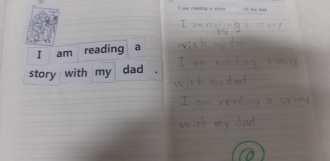 I am reading a
story with my dad .
I am reading a story with my dad
I am reading a story
with my
I am reading story
with my dad
I am reading a story
with my dad